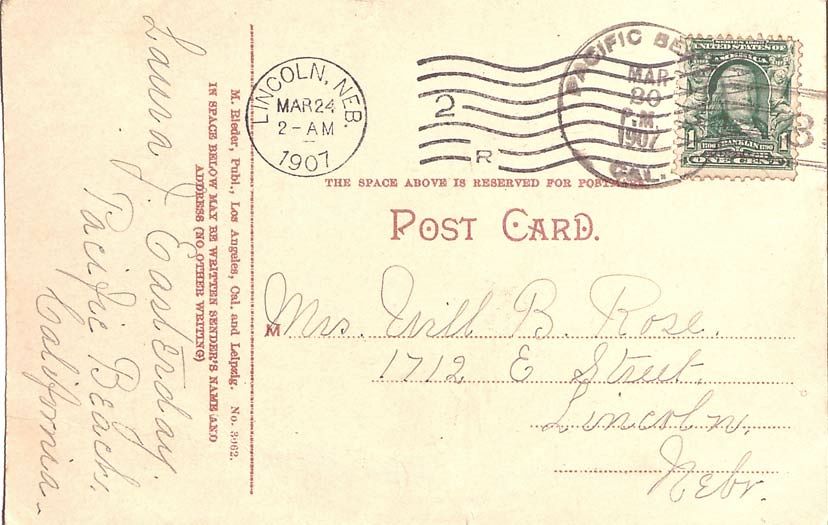 LINCOLN, NEB.
MAR 24
2-AM
1907
2
R
PACIFIC BEA
MAR
20
P.M.
1907
CAL.
UNITED STATES OF
AMERICA
1 FRANKLIN 1
ONE CENT
3
THE SPACE ABOVE IS RESERVED FOR POSTM
POST CARD.
Mrs. Will B. Rose.
1712 E Street,
Lincoln,
Nebr.
M. Rieder, Publ., Los Angeles, Cal. and Leipzig. No. 3962.
IN SPACE BELOW MAY BE WRITTEN SENDER'S NAME AND
ADDRESS (NO OTHER WRITING)
Laura J. Easterday.
Pacific Beach.
California